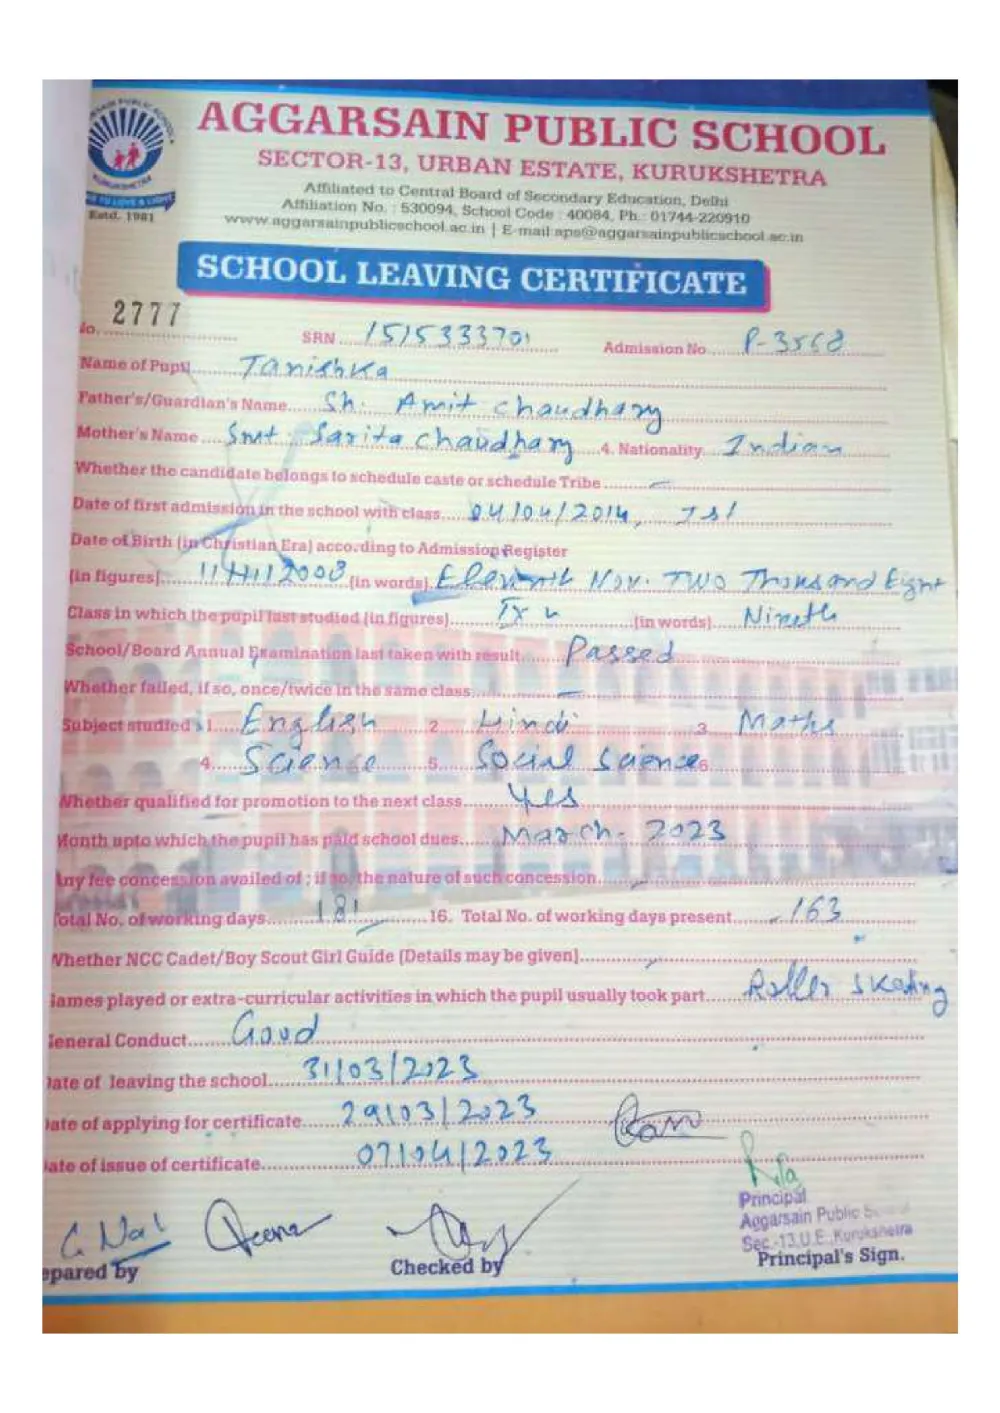 AGGARSAIN PUBLIC SCHOOL
SECTOR-13, URBAN ESTATE, KURUKSHETRA
Affiliated to Central Board of Secondary Education, Delhi
Affiliation No. : 530094, School Code : 40084, Ph.: 01744-220910
www.aggarsainpublicschool.ac.in | E-mail:aps@aggarsainpublicschool.ac.in
KURUKSHETRA
Estd. 1981
SCHOOL LEAVING CERTIFICATE
No. 2777 SRN 1515333701 Admission No P-3568
Name of Pupil Tanishka
Father's/Guardian's Name Sh. Amit Chaudhary
Mother's Name Smt. Sarita Chaudhary 4. Nationality Indian
Whether the candidate belongs to schedule caste or schedule Tribe –
Date of first admission in the school with class 04/04/2014, Ist
Date of Birth (in Christian Era) according to Admission Register
(in figures) 11/11/2008 (in words) Eleventh Nov. Two Thousand Eight
Class in which the pupil last studied (in figures) IX (in words) Nineth
School/Board Annual Examination last taken with result Passed
Whether failed, if so, once/twice in the same class –
Subject studied 1 English 2 Hindi 3 Maths
4 Science 5 Social Science 6
Whether qualified for promotion to the next class Yes
Month upto which the pupil has paid school dues March - 2023
Any fee concession availed of ; if so, the nature of such concession
Total No. of working days 181 16. Total No. of working days present 163
Whether NCC Cadet/Boy Scout Girl Guide (Details may be given)
Games played or extra-curricular activities in which the pupil usually took part Roller Skating
General Conduct Good
Date of leaving the school 31/03/2023
Date of applying for certificate 29/03/2023
Date of issue of certificate 07/04/2023
Principal
Aggarsain Public
Sec.-13,U.E.,Kurukshetra
epared by Checked by Principal's Sign.